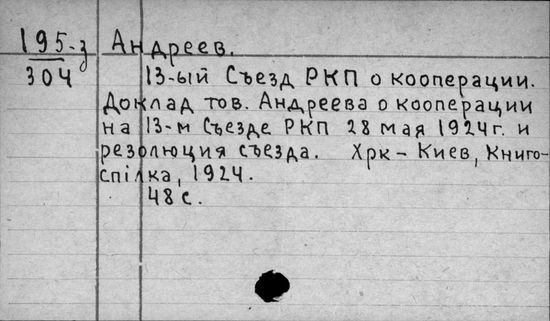 195-з Андреев.
304
13-ый Съезд РКП о кооперации.
Доклад тов. Андреева о кооперации
на 13-м Съезде РКП 28 мая 1924г. и
резолюция съезда. Хрк - Киев, Книго-
спілка, 1924.
48 с.